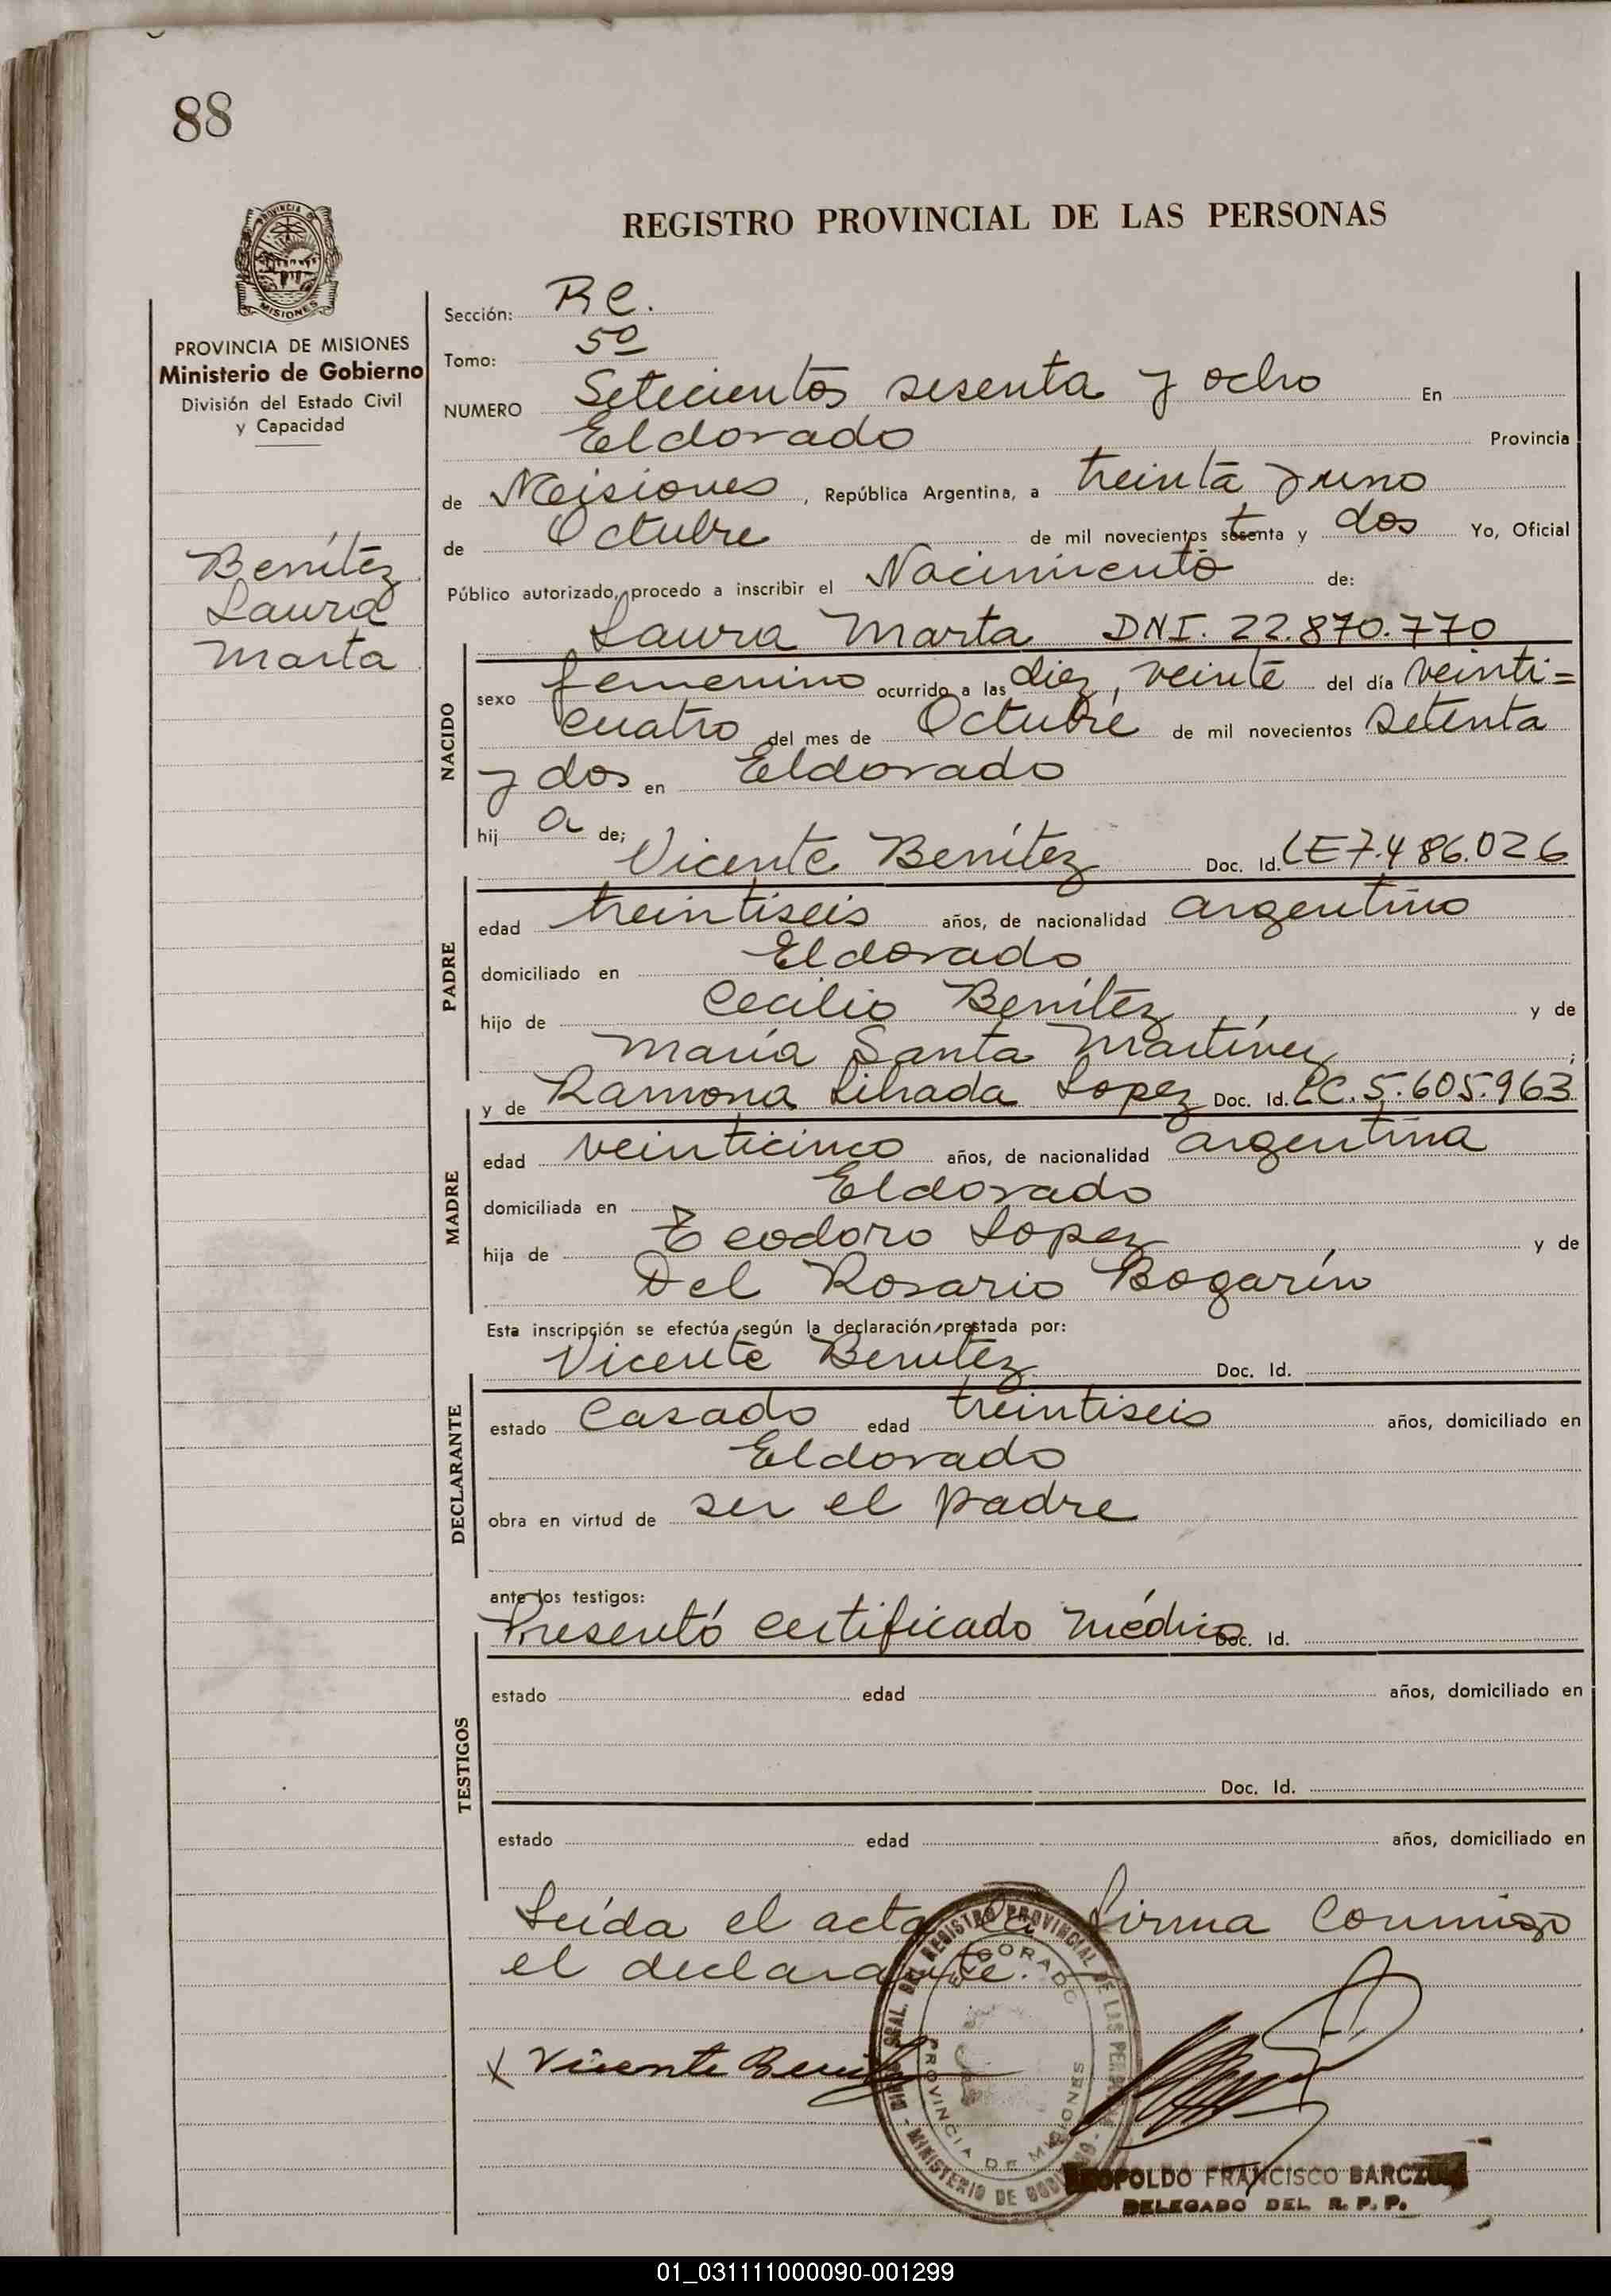 88
PROVINCIA DE MISIONES
Ministerio de Gobierno
División del Estado Civil
y Capacidad
Benítez
Laura
Marta
REGISTRO PROVINCIAL DE LAS PERSONAS
Sección: RC.
Tomo: 5º
NUMERO Setecientos sesenta y ocho En
Eldorado Provincia
de Misiones, República Argentina, a treinta y uno
de Octubre de mil novecientos setenta y dos Yo, Oficial
Público autorizado, procedo a inscribir el Nacimiento de:
Laura Marta DNI. 22.870.770
NACIDO
sexo femenino ocurrido a las diez, veinte del día veinti=
cuatro del mes de Octubre de mil novecientos setenta
y dos en Eldorado
hij a de;
Vicente Benítez Doc. Id. LE7.486.026
PADRE
edad treintiseis años, de nacionalidad argentino
domiciliado en Eldorado
hijo de Cecilio Benítez y de
María Santa Martínez ;
y de Ramona Librada Lopez Doc. Id. LC.5.605.963
MADRE
edad veinticinco años, de nacionalidad argentina
domiciliada en Eldorado
hija de Teodoro Lopez y de
Del Rosario Bogarín
Esta inscripción se efectúa según la declaración prestada por:
Vicente Benítez Doc. Id.
DECLARANTE
estado Casado edad treintiseis años, domiciliado en
Eldorado
obra en virtud de ser el padre
ante los testigos:
Presentó certificado médico Doc. Id.
TESTIGOS
estado edad años, domiciliado en
Doc. Id.
estado edad años, domiciliado en
Leída el acta la firma conmigo
el declarante.
x Vicente Benitez
GRAL. DEL REGISTRO PROVINCIAL DE LAS
ELDORADO
PROVINCIA DE MISIONES
MINISTERIO DE
LEOPOLDO FRANCISCO
DELEGADO DEL R. P. P.
01_031111000090-001299